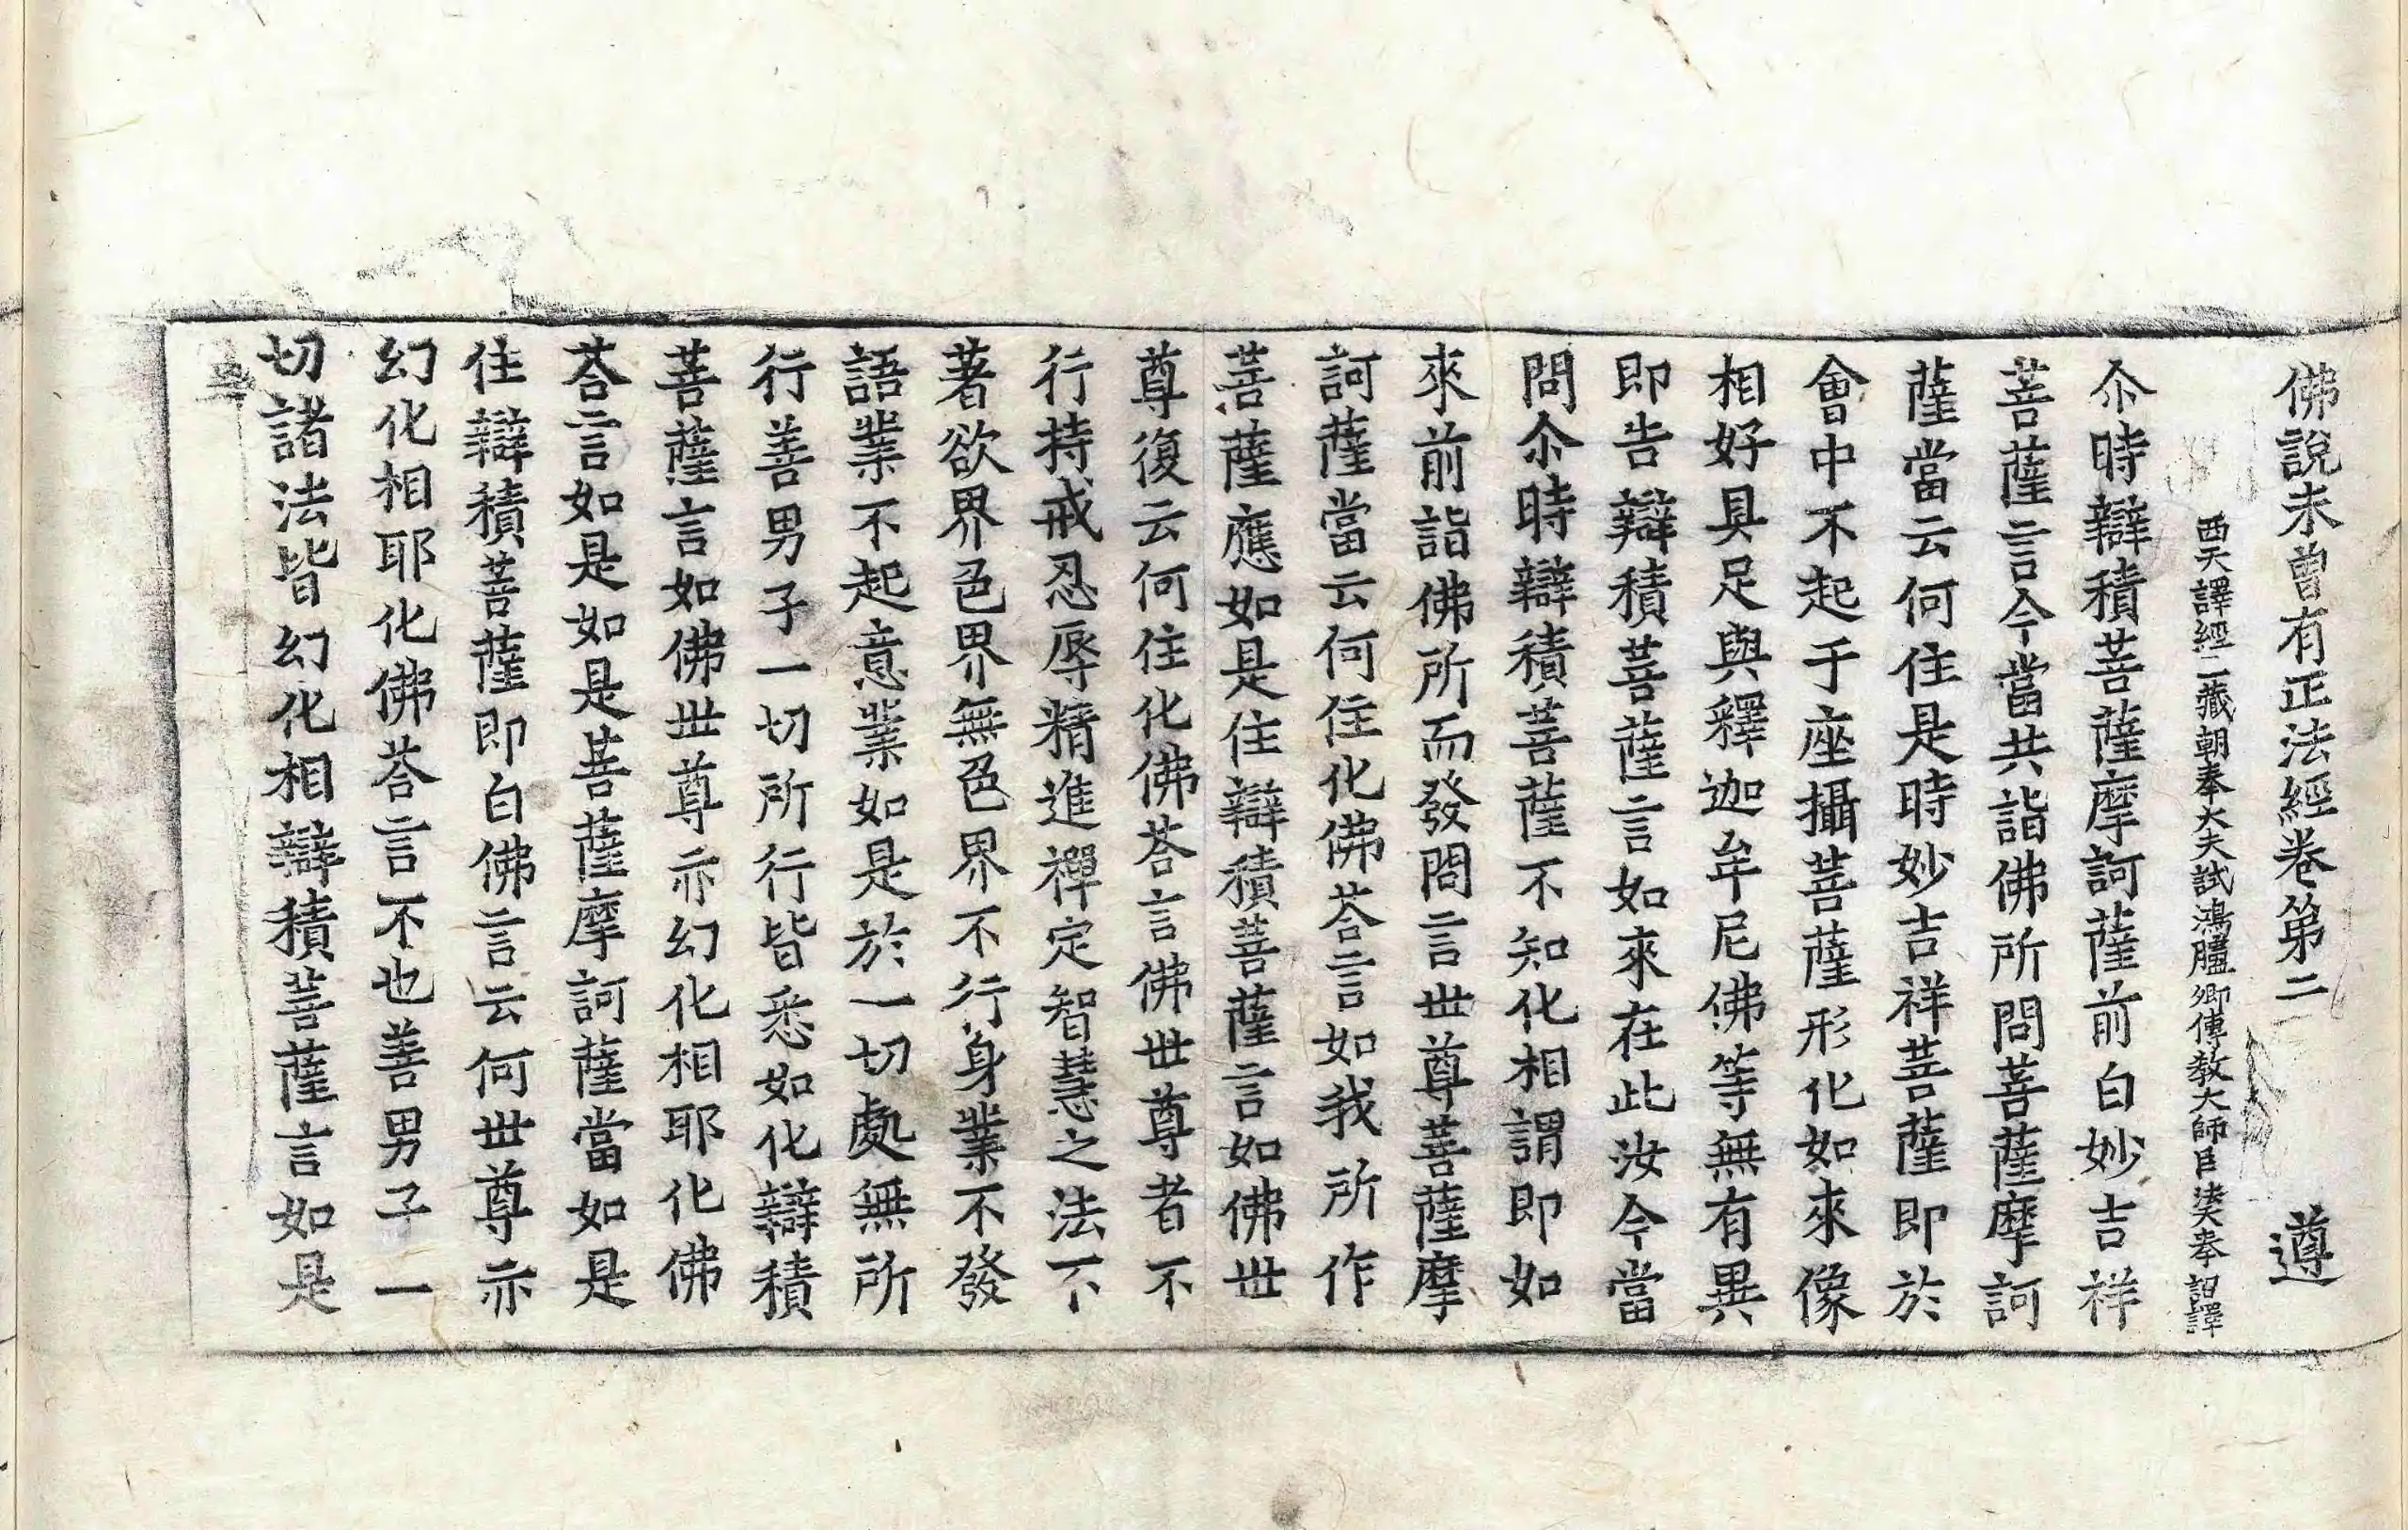 佛說未曾有正法經卷第二　遵
西天譯經三藏朝奉大夫試鴻臚卿傳教大師臣法天奉　詔譯
尒時辯積菩薩摩訶薩前白妙吉祥
菩薩言今當共詣佛所問菩薩摩訶
薩當云何住是時妙吉祥菩薩即於
會中不起于座攝菩薩形化如來像
相好具足與釋迦牟尼佛等無有異
即告辯積菩薩言如來在此汝今當
問尒時辯積菩薩不知化相謂即如
來前詣佛所而發問言世尊菩薩摩
訶薩當云何住化佛荅言如我所作
菩薩應如是住辯積菩薩言如佛世
尊復云何住化佛荅言佛世尊者不
行持戒忍辱精進禪定智慧之法不
著欲界色界無色界不行身業不發
語業不起意業如是於一切處無所
行善男子一切所行皆悉如化辯積
菩薩言如佛世尊亦幻化相耶化佛
荅言如是如是菩薩摩訶薩當如是
住辯積菩薩即白佛言云何世尊亦
幻化相耶化佛荅言不也善男子一
切諸法皆幻化相辯積菩薩言如是